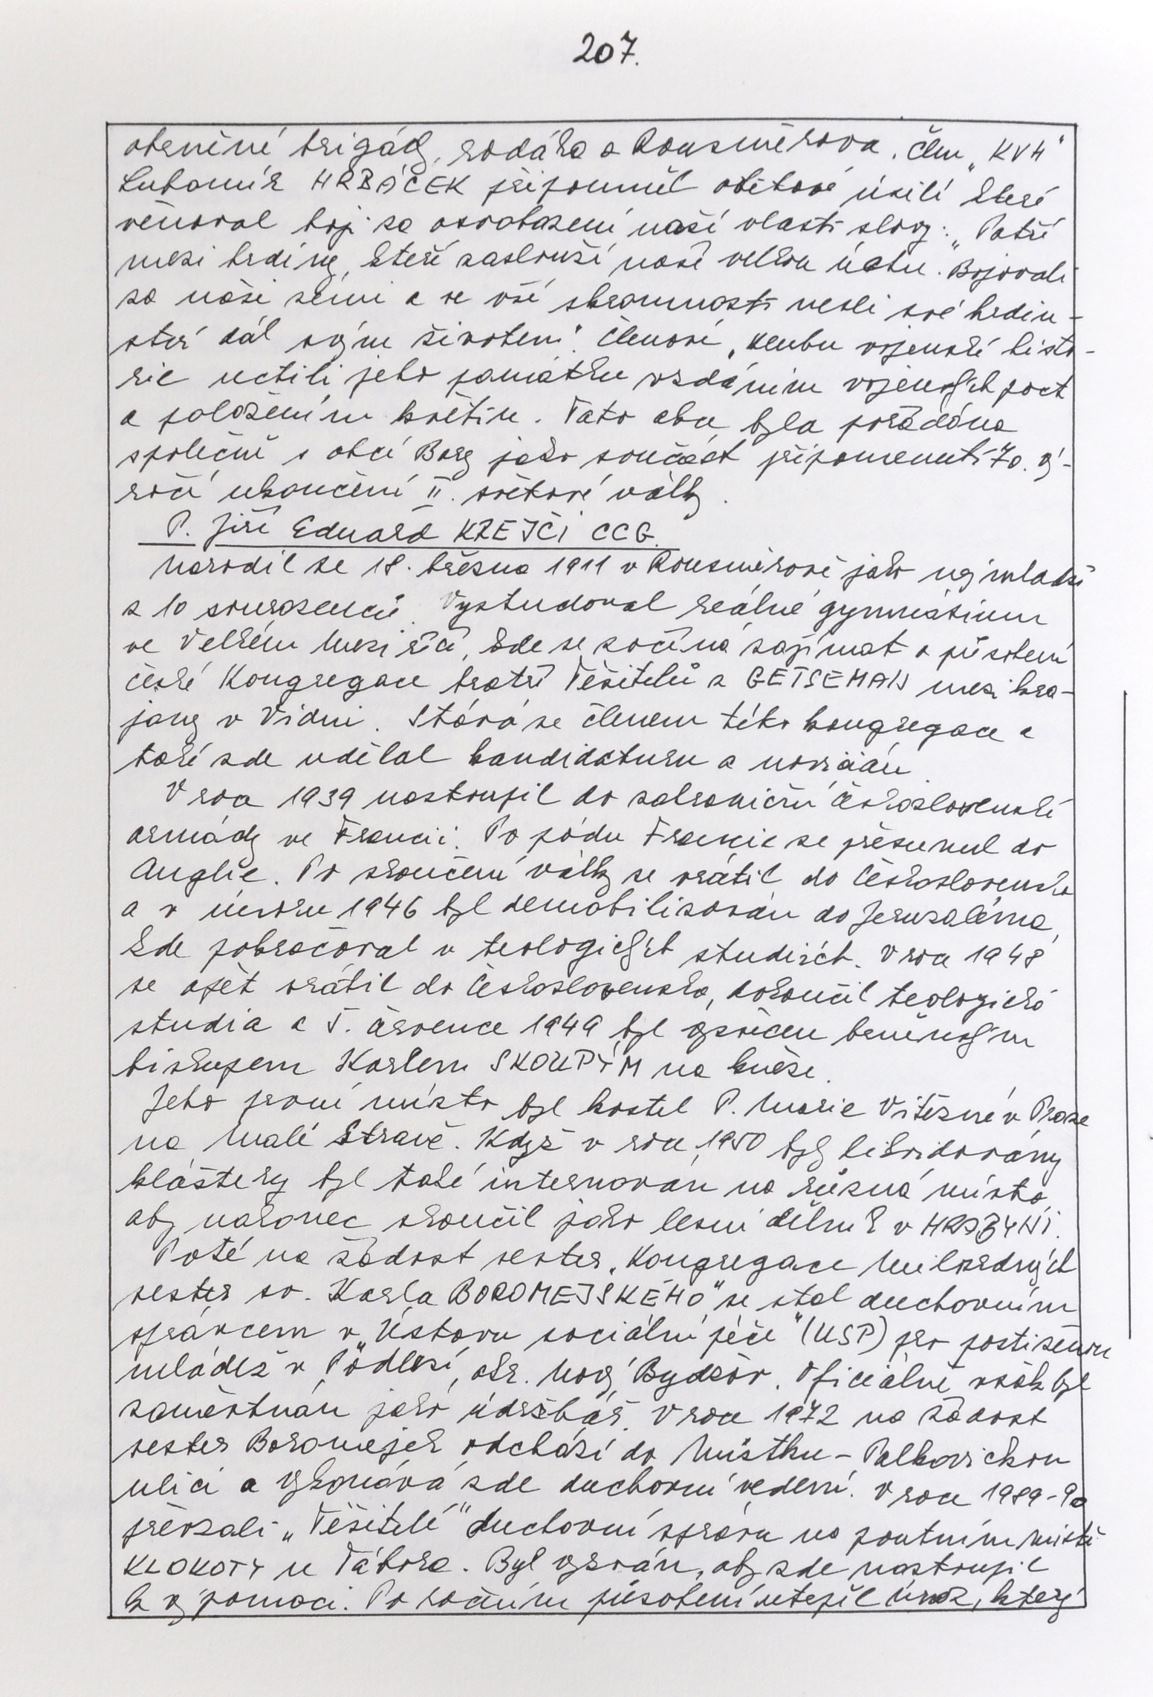 207.
obrněné brigády, rodáka z Rousměrova. Člen „KVH“
Lubomír HRBÁČEK připomněl obětavé úsilí které
věnoval boji za osvobození naší vlasti slovy: „Patří
mezi hrdiny, kteří zaslouží naše velkou úctu. Bojovali
za naši zemi a ve vší skromnosti nesli své hrdin-
ství dál svým životem“. Členové „klubu vojenské histo-
rie uctili jeho památku vzdáním vojenských poct
a položením květin. Tato akce byla pořádána
společně s obcí Bory jako součást připomenutí 70. vý-
ročí ukončení II. světové války.
P. Jiří Eduard KREJČÍ CCG.
Narodil se 18. března 1911 v Rousměrově jako nejmladší
z 10 sourozenců. Vystudoval reálné gymnásium
ve Velkém Meziříčí, kde se začíná zajímat o působení
české Kongregace bratří Těšitelů z GETSEMAN mezi kra-
jany v Vídni. Stává se členem této kongregace a
také zde udělal kandidaturu a noviciát.
V roce 1939 nastoupil do zahraniční československé
armády ve Francii. Po pádu Francie se přesunul do
Anglie. Po skončení války se vrátil do Československa
a v únoru 1946 byl demobilisován do Jeruzaléma,
kde pokračoval v teologických studiích. V roce 1948
se opět vrátil do Československa, dokončil teologická
studia a 5. července 1949 byl vysvěcen brněnským
biskupem Karlem SKOUPÝM na kněze.
Jeho první místo byl kostel P. Marie Vítězné v Praze
na Malé Straně. Když v roce 1950 byly likvidovány
kláštery byl také internován na různá místa,
aby nakonec skončil jako lesní dělník v HRABYNI.
Poté na žádost sester „Kongregace Milosrdných
sester sv. Karla BOROMEJSKÉHO“ se stal duchovním
správcem v „Ústavu sociální péče“ (ÚSP) pro postiženou
mládež v Podlesí, okr. Nový Bydžov. Oficiálně však byl
zaměstnán jako údržbář. V roce 1972 na žádost
sester Boromejek odchází do Místku – Palkovickou
ulici a vykonává zde duchovní vedení. V roce 1989-90
převzali „Těšitelé“ duchovní správu na poutním místě
KLOKOTY u Tábora. Byl vyzván, aby zde nastoupil
k výpomoci. Po ročním působení utrpěl úraz, který